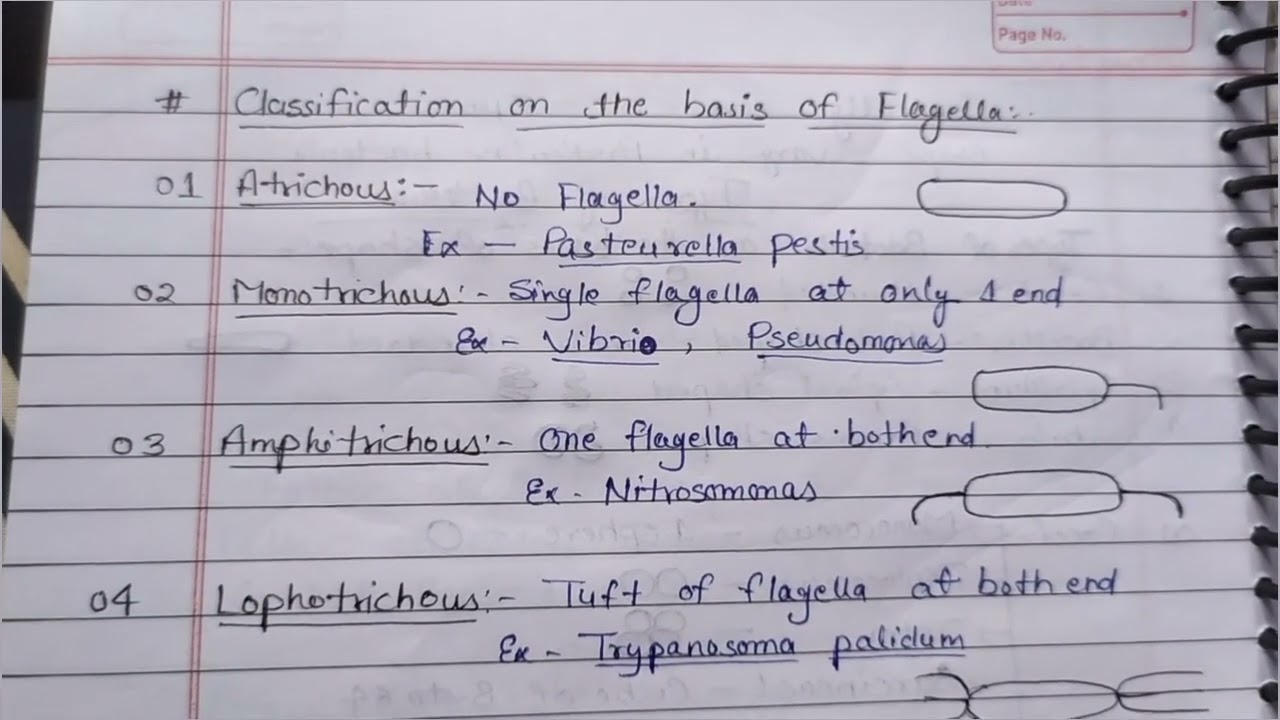 Page No.
# Classification on the basis of Flagella:-
01 Atrichous:- No Flagella.
Ex - Pasteurella pestis
02 Monotrichous:- Single flagella at only 1 end
Ex - Vibrio, Pseudomonas
03 Amphitrichous:- One flagella at both end.
Ex - Nitrosomonas
04 Lophotrichous:- Tuft of flagella at both end
Ex - Trypanosoma palidum